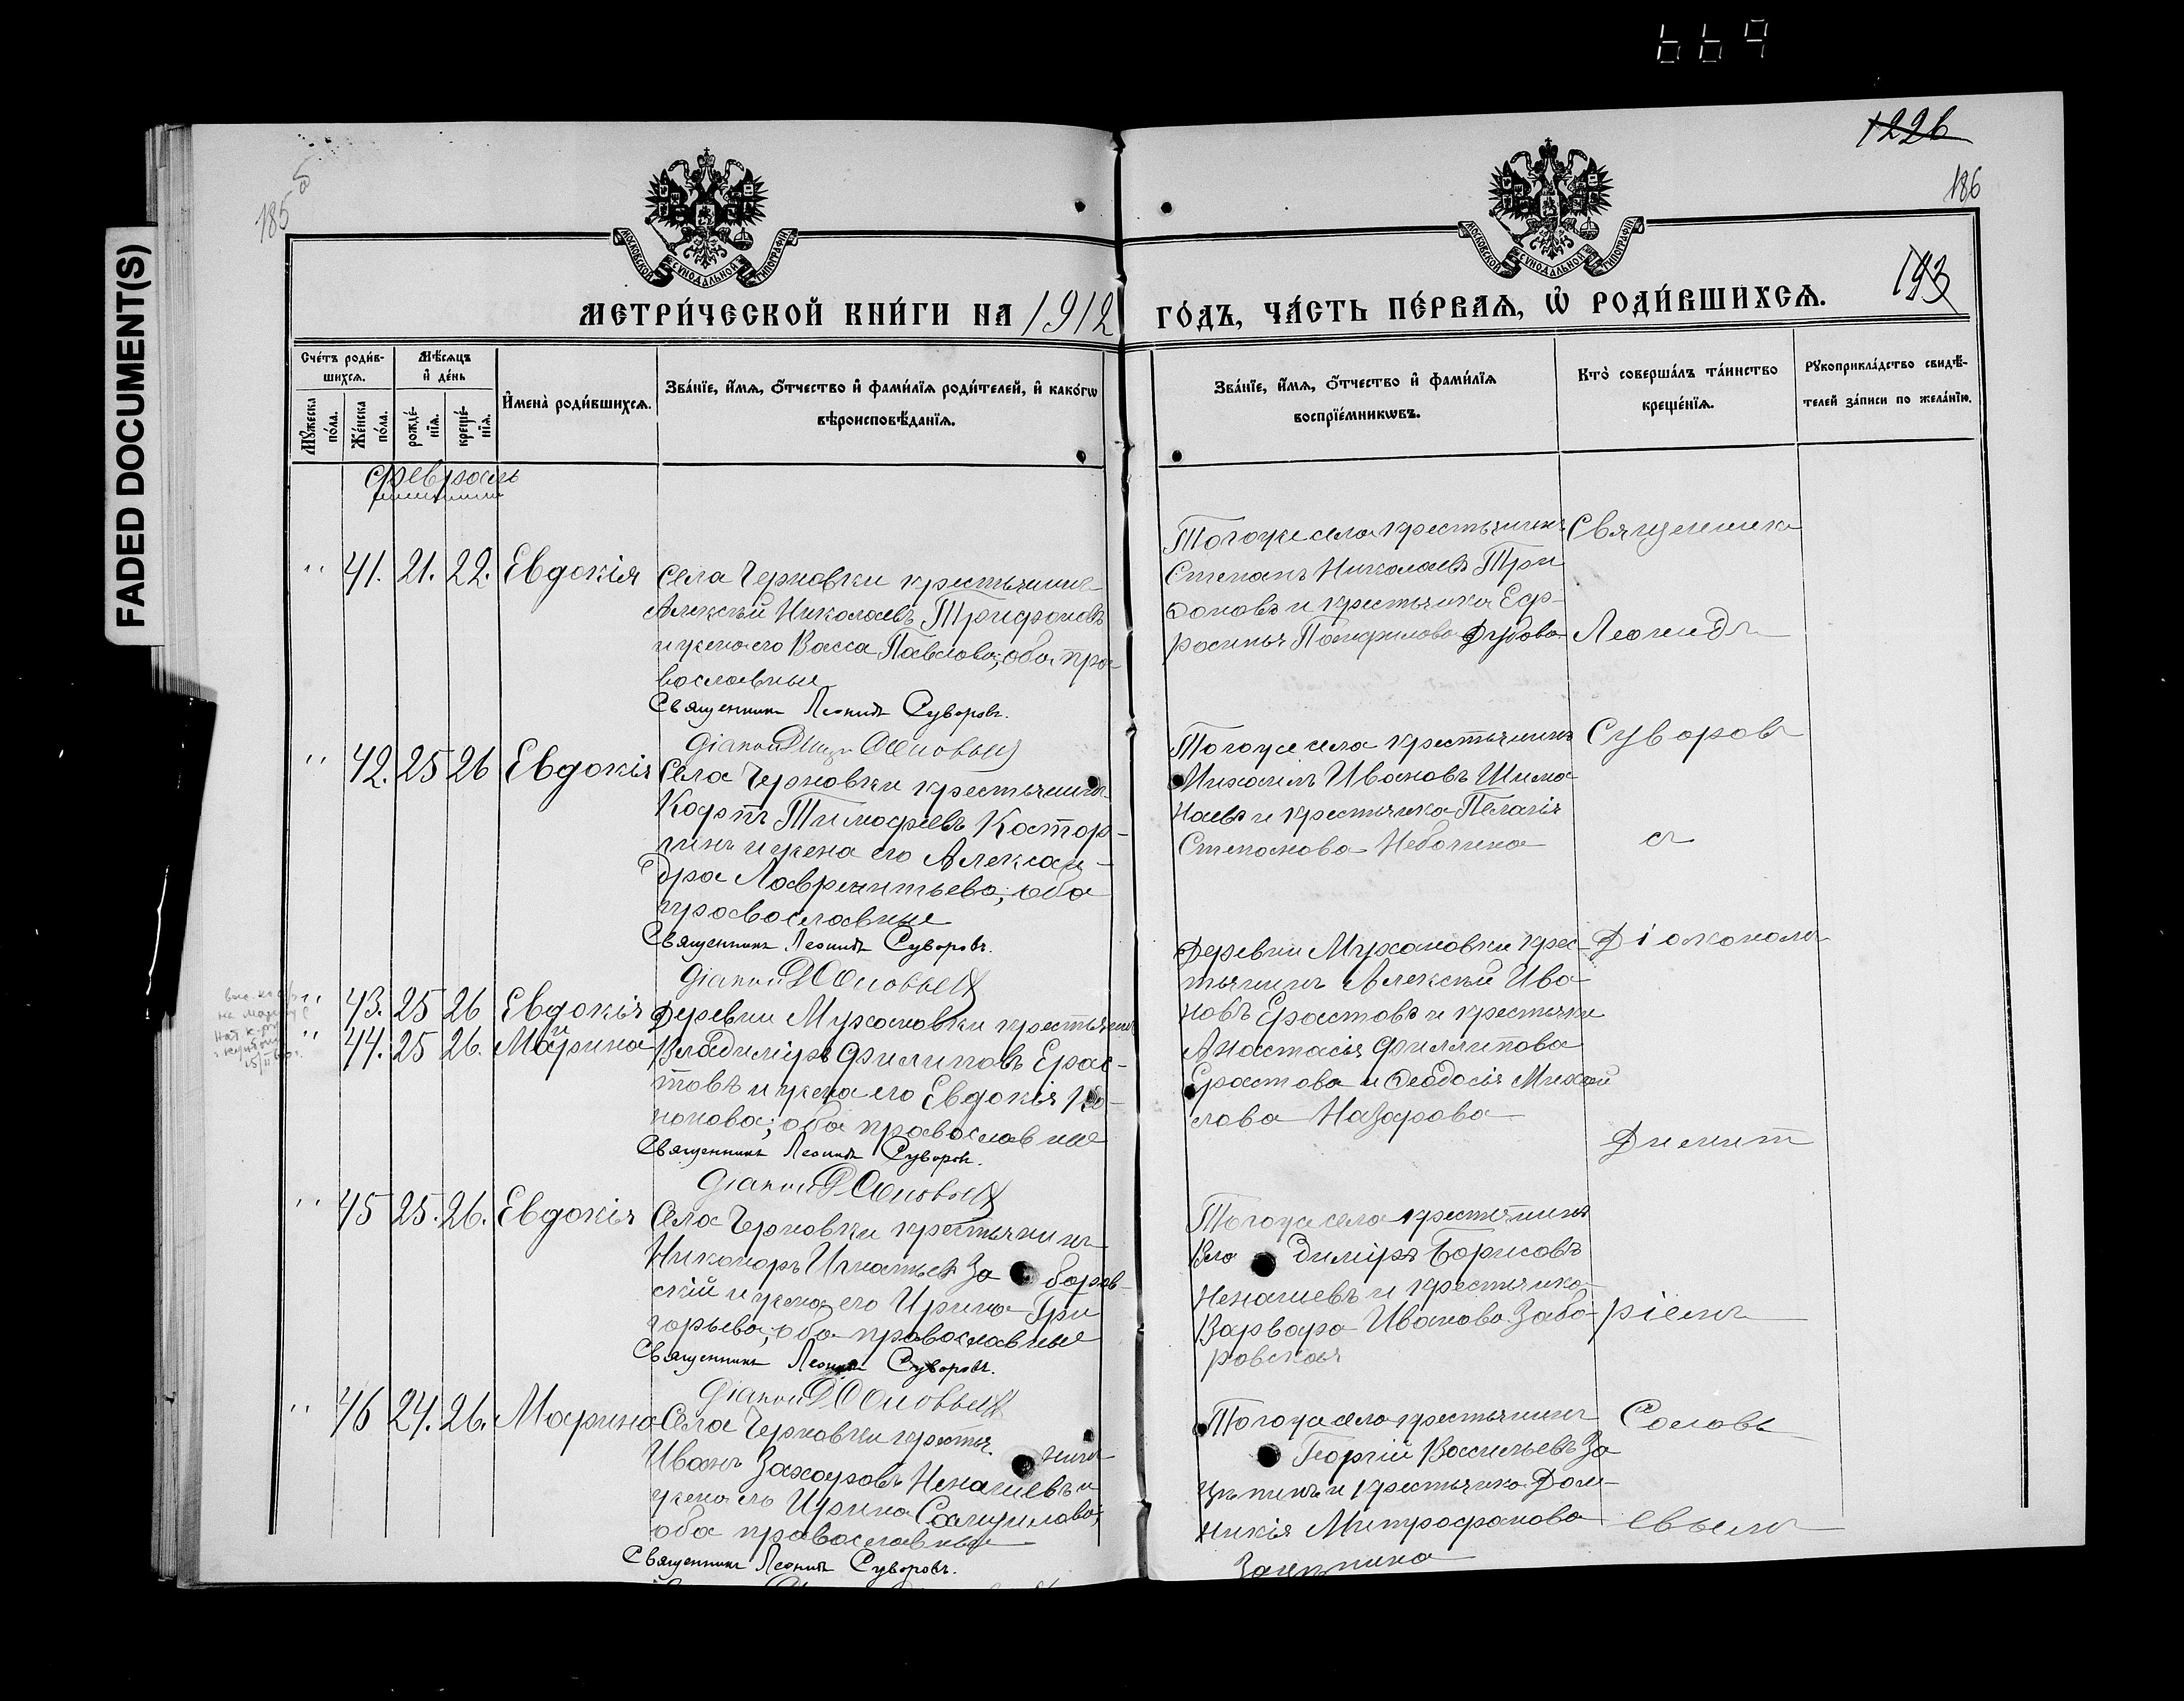 669
FADED DOCUMENT(S)
1226
185 об
186
193
МОСКОВСКОЙ СУНОДАЛЬНОЙ ТИПОГРАФІИ
МОСКОВСКОЙ СУНОДАЛЬНОЙ ТИПОГРАФІИ
МЕТРИ́ЧЕСКОЙ КНИ́ГИ НА 1912 ГО́ДЪ, ЧА́СТЬ ПЕ́РВАѦ, Ѽ РОДИ́ВШИХСѦ.
Сче́тъ роди́в-
шихсѧ.
Мꙋ́жеска по́ла.
Же́нска по́ла.
Мѣ́сѧцъ
и҆ де́нь
рожде́-
нїѧ.
креще́-
нїѧ.
И҆мена̀ роди́вшихсѧ.
Зва́нїе, и҆́мѧ, ѻ҆́тчество и҆ фами́лїѧ роди́телей, и҆ како́гѡ
вѣроисповѣ́данїѧ.
Зва́нїе, и҆́мѧ, ѻ҆́тчество и҆ фами́лїѧ
воспрїе́мникѡвъ.
Кто̀ соверша́лъ та́инство
креще́нїѧ.
Рꙋкоприкла́дство свидѣ́-
телей за́писи по жела́нїю.
Февраль
" 41. 21. 22. Евдокія
Села Черновки крестьянинъ
Алексѣй Николаевъ Трифоновъ
и жена его Васса Павлова; оба пра
вославные
Священникъ Леонидъ Суворовъ.
Тогоже села крестьянинъ
Степанъ Николаевъ Три
фоновъ и крестьянка Еф-
росинья Панфилова Дубова
Священникъ
Леонидъ
" 42. 25 26 Евдокія
Села Черновки крестьянинъ
Карпъ Тимофеевъ Кастор-
гинъ и жена его Алексан-
дра Лаврентьева; оба
православные
Священникъ Леонидъ Суворовъ.
Тогоже села крестьянинъ
Михаилъ Ивановъ Шима
наевъ и крестьянка Пелагія
Степанова Небогина
Суворовъ
съ
" 43. 25 26 Евдокія
" 44. 25 26. Марина
Деревни Мухановки крестьянинъ
Владиміръ Филиповъ Ерас-
товъ и жена его Евдокія
нонова; оба православные
Священникъ Леонидъ Суворовъ.
Деревни Мухановки крес-
тьянинъ Алексѣй Ива
новъ Ерастовъ и крестьянки
Анастасія Филлипова
Ерастова и Феодосія Михай
лова Назарова
Діакономъ
Димит
" 45 25. 26. Евдокія
Села Черновки крестьянинъ
Никаноръ Игнатьевъ За боров-
скій и жена его Ирина Гри
горьева; оба православные
Священникъ Леонидъ Суворовъ.
Тогоже села крестьянинъ
Вла диміръ Борисовъ
Ненашевъ и крестьянка
Варвара Иванова Забо-
ровская
ріемъ
" 46 24. 26. Марина
Села Черновки крестья нинъ
Иванъ Захаровъ Ненашевъ и
жена его Ирина Самуилова;
оба православные
Священникъ Леонидъ Суворовъ.
Тогоже села крестьянинъ
Георгій Васильевъ За
цепинъ и крестьянка Дом-
никія Митрофанова
Зацепина
Соловь
евымъ